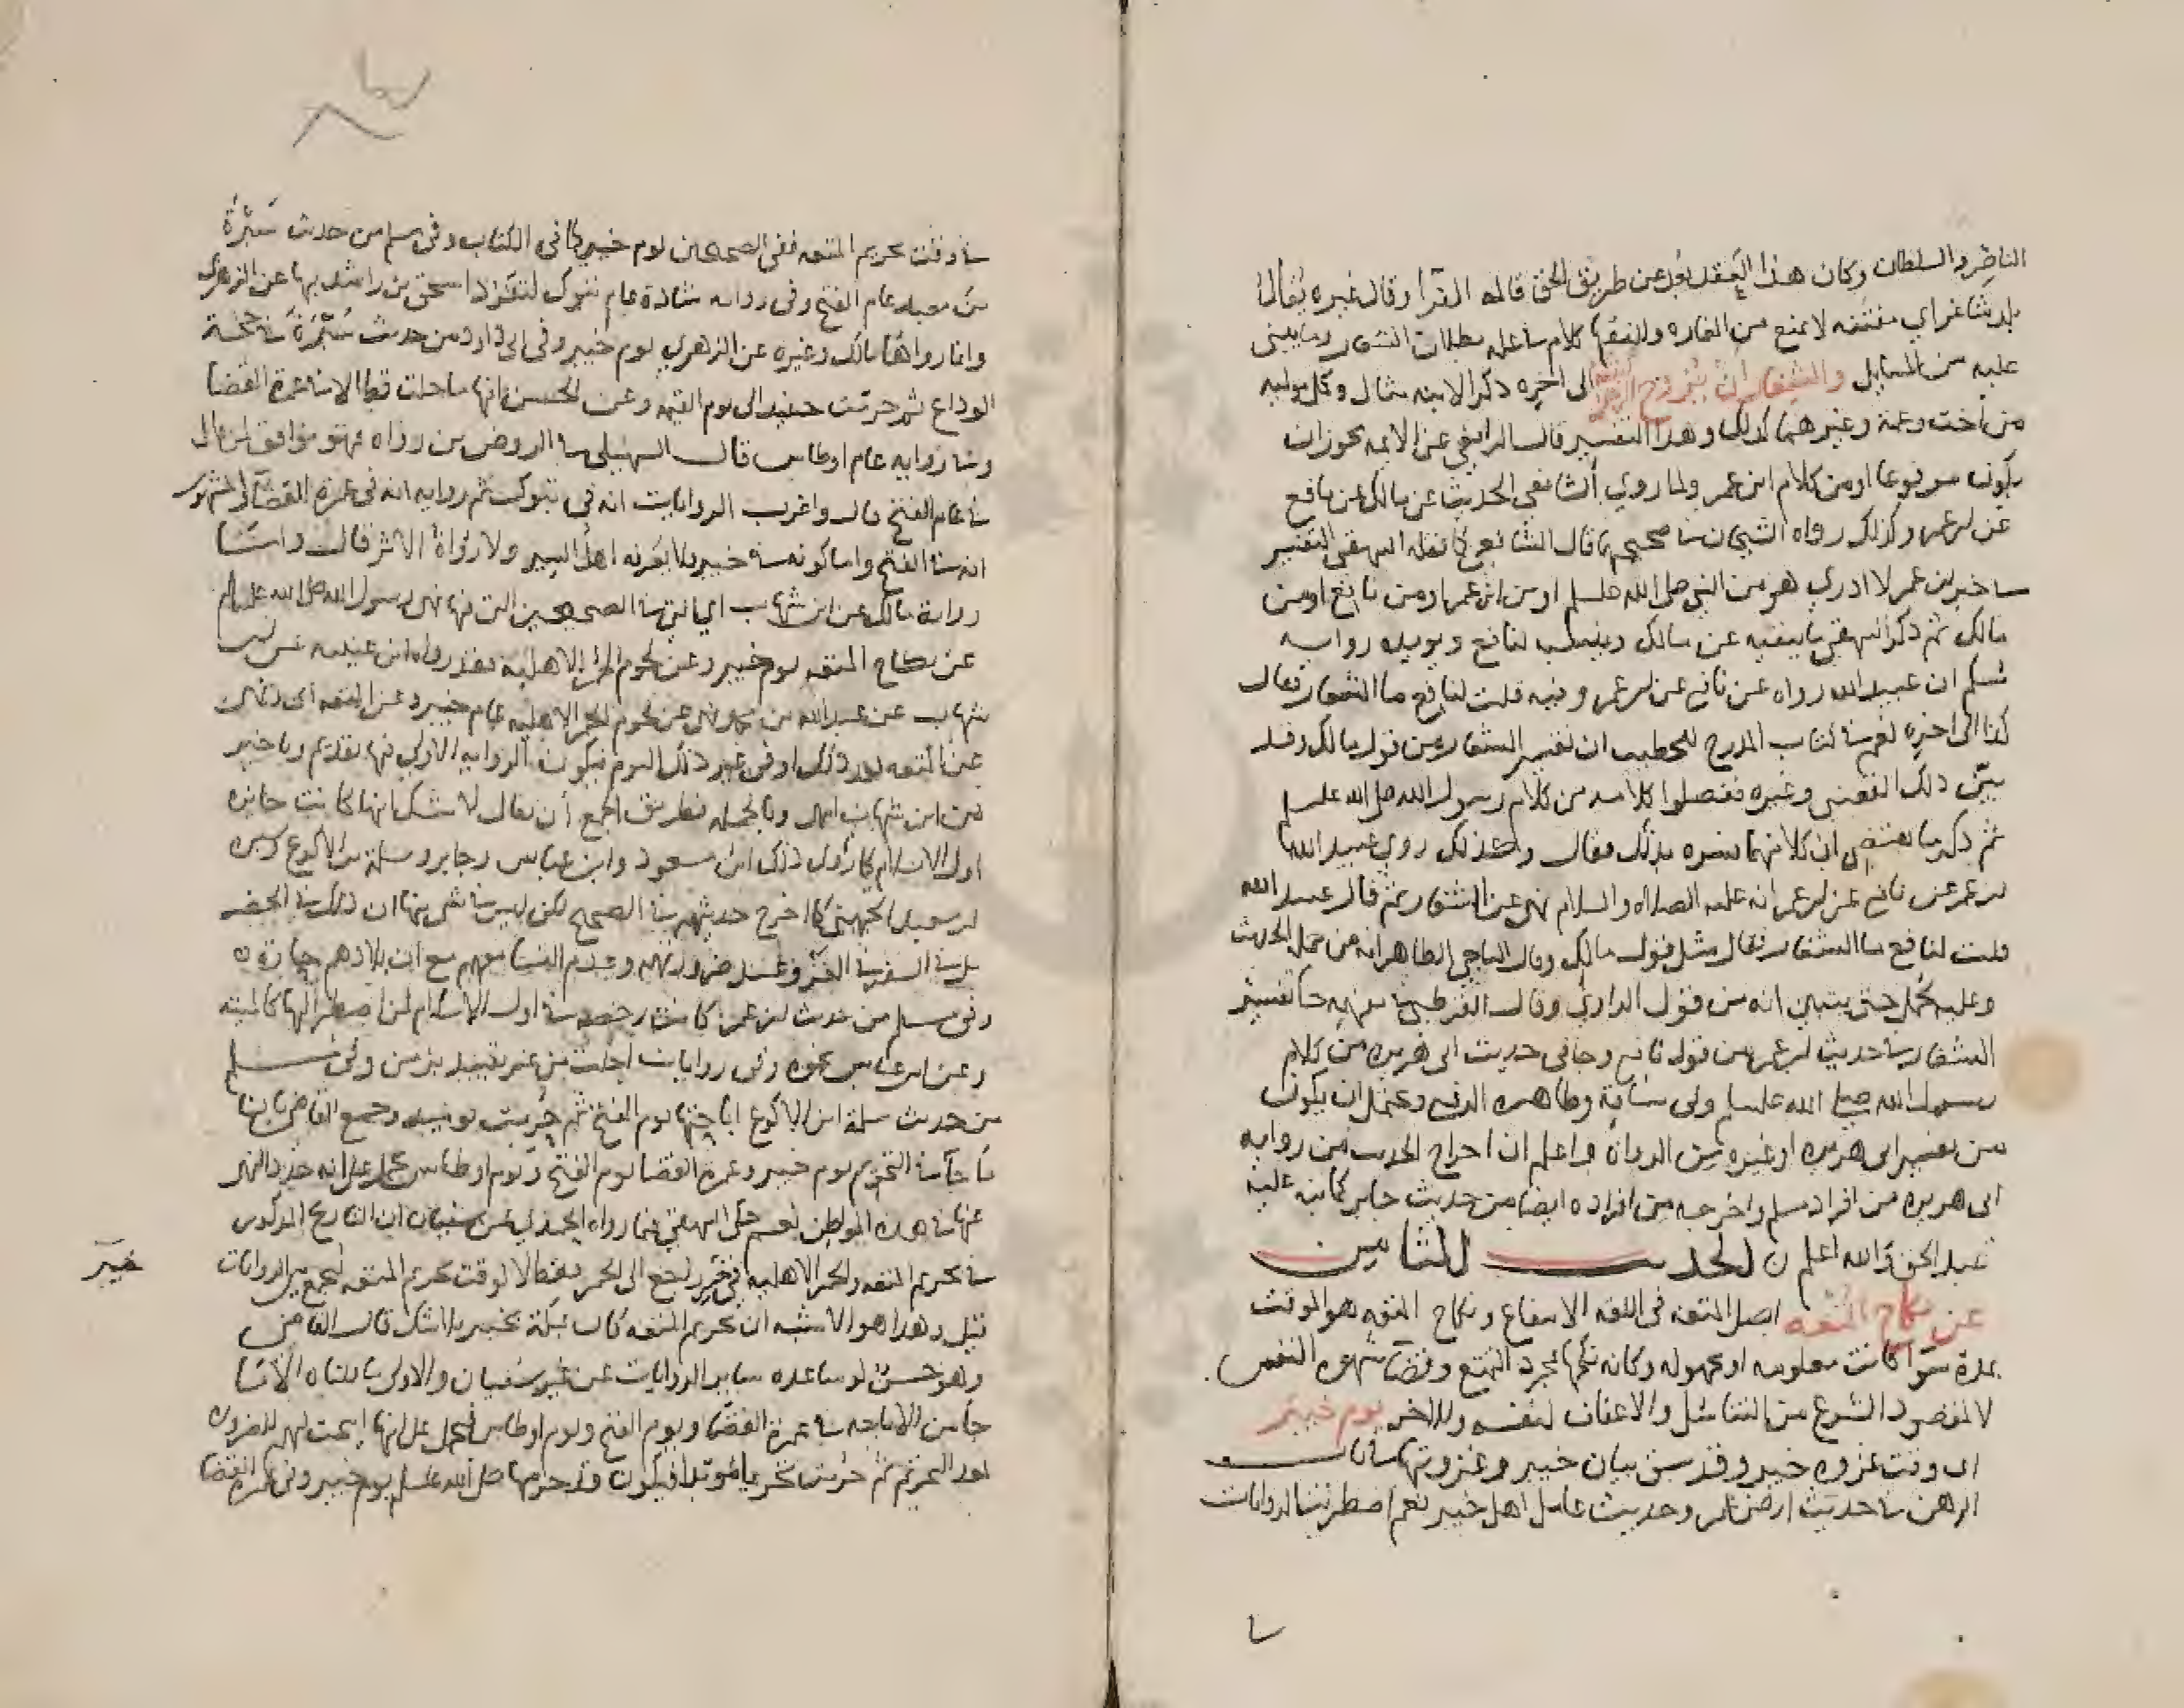 الناصر والسلطان وكان هذا العقد بعد عن طريق الحق قاله الفرا وقال غيره يقال
بلد شاغر اي مفتقه لا تمنع من الغاره وللفقها كلام على بطلان الشغار وما ينبني
عليه من المسايل والشغار ان يتزوج الرجل ابنته الى اخره ذكر الابنه مثال وكل موليه
من اخت وعمة وغيرهما كذلك وهذا التفسير قال الرافعي عن الايمه يجوز ان
يكون مرفوعا او من كلام ابن عمر ولما روي الشافعي الحديث عن مالك عن نافع
عن ابن عمر وكذلك رواه الشيخان في صحيحيهما قال الشافعي كما نقله البيهقي التفسير
في خبر ابن عمر لا ادري هو من النبي صلى الله عليه وسلم او من ابن عمر او من نافع او من
مالك ثم ذكر البيهقي ما يبينه عن مالك وينسب لنافع ويويده رواية
مسلم ان عبيد الله رواه عن نافع عن ابن عمر وفيه قلت لنافع ما الشغار فقال
كذا الى اخره نعم في كتاب المدرج للخطيب ان تفسير الشغار من قول مالك وقد
بين ذلك القعنبي وغيره ففصلوا كلامه من كلام رسول الله صلى الله عليه وسلم
ثم ذكر ما يقتضي ان كلا منهما فسره بذلك فقال وكذلك روي عبيد الله
بن عمر عن نافع عن ابن عمر انه عليه الصلاه والسلام نهى عن الشغار ثم قال عبيد الله
قلت لنافع ما الشغار فقال مثل قول مالك وقال الباجي الظاهر انه من جملة الحديث
وعليه يحمل حتى يتبين انه من قول الراوي وقال القرطبي في مفهمه جا تفسير
الشغار في حديث ابن عمر من قول نافع وجا في حديث ابي هريره من كلام
رسول الله صلى الله عليه وسلم وفي سياقه وظاهره الرفع ويحتمل ان يكون
من تفسير ابي هريره او غيره من الرواة واعلم ان اخراج الحديث من رواية
ابي هريره من افراد مسلم واخرجه من افراده ايضا من حديث جابر كما نبه عليه
عبد الحق والله اعلم ن الحديث الثامن
عن نكاح المتعه اصل المتعه في اللغه الانتفاع ونكاح المتعه هو الموقت
بمدة سوا كانت معلومه او مجهوله وكانه نكحها لمجرد التمتع وقضا شهوة النفس
لا لمقصود الشرع من التناسل والاعفاف لنفسه وللاخر يوم خيبر
اي وقت غزوه خيبر وقد سبق بيان خيبر وغزوتها في باب
الرهن في حديث ارض عمر وحديث عامل اهل خيبر نعم اضطربت الروايات
في وقت تحريم المتعه ففي الصحيحين يوم خيبر كما في الكتاب وفي مسلم من حديث سبرة
بن معبد عام الفتح وفي رواية شاذة عام تبوك لتفرد اسحق بن راشد بها عن الزهري
وانما رواها مالك وغيره عن الزهري يوم خيبر وفي ابي داود من حديث سبرة في حجة
الوداع ثم حرمت حينيذ الى يوم القيمه وعن الحسن انها ما حلت قط الا في عمرة القضا
وفي روايه عام اوطاس قال السهيلي في الروض من رواه فهو موافق لمن قال
في عام الفتح قال واغرب الروايات انه في تبوك ثم روايه انه في عمرة القضا والمشهور
انه في الفتح واما كونه في خيبر فلا يعرفه اهل السير ولا رواة الاثر قال واما
رواية مالك عن ابن شهاب اي التي في الصحيحين التي فيها نهى رسول الله صلى الله عليه وسلم
عن نكاح المتعه يوم خيبر وعن لحوم الحمر الاهلية فقد رواه ابن عيينه عن ابن
شهاب عن عبد الله بن محمد نهى عن لحوم الحمر الاهليه عام خيبر وعن المتعه اي ونهى
عن المتعه بعد ذلك او في غير ذلك اليوم فيكون الروايه الاولى فيها تقديم وتاخير
من ابن شهاب انتهى وبالجمله فطريق الجمع أن يقال لا شك انها كانت جايزه
اول الاسلام كما روى ذلك ابن مسعود وابن عباس وجابر وسلمة بن الاكوع وسبره
بن معبد الجهني كما اخرج حديثهم في الصحيح لكن ليس في شي منها ان ذلك في الحضر
بل في السفر في الغزو وعند ضرورتهم وعدم النسا معهم مع ان بلادهم حارة
وفي مسلم من حديث ابن عمر كانت رخصه في اول الاسلام لمن اضطر اليها كالميته
وعن ابن عباس نحوه وفي روايات احلت من غير تقييد بزمن وفي مسلم
من حديث سلمة ابن الاكوع اباحتها يوم الفتح ثم حرمت يوميذ وجمع القاضي بان ما
جا في التحريم يوم خيبر وعمرة القضا يوم الفتح ويوم اوطاس محمل على انه جدد النهي
عنها في هذه المواطن نعم حكى البيهقي فيما رواه الحميدي عن سفيان ان التاريخ المذكور
في تحريم المتعه والحمر الاهليه في خيبر يرجع الى الحمر فقط لا لوقت تحريم المتعه ليجمع بين الروايات
قيل وهذا هو الاشبه ان تحريم المتعه كان بمكة بخيبر بلا شك قال القاضي
وهو حسن لو ساعده ساير الروايات عن غير سفيان والاولى ما قلناه الا ما
جا من الاباحه في عمرة القضا ويوم الفتح ويوم اوطاس فيحمل على انها ابيحت لهم للضرورة
بعد التحريم ثم حرمت تحريما مؤبدا فيكون قد حرمها صلى الله عليه وسلم يوم خيبر وفي عمرة القضا
خيبر